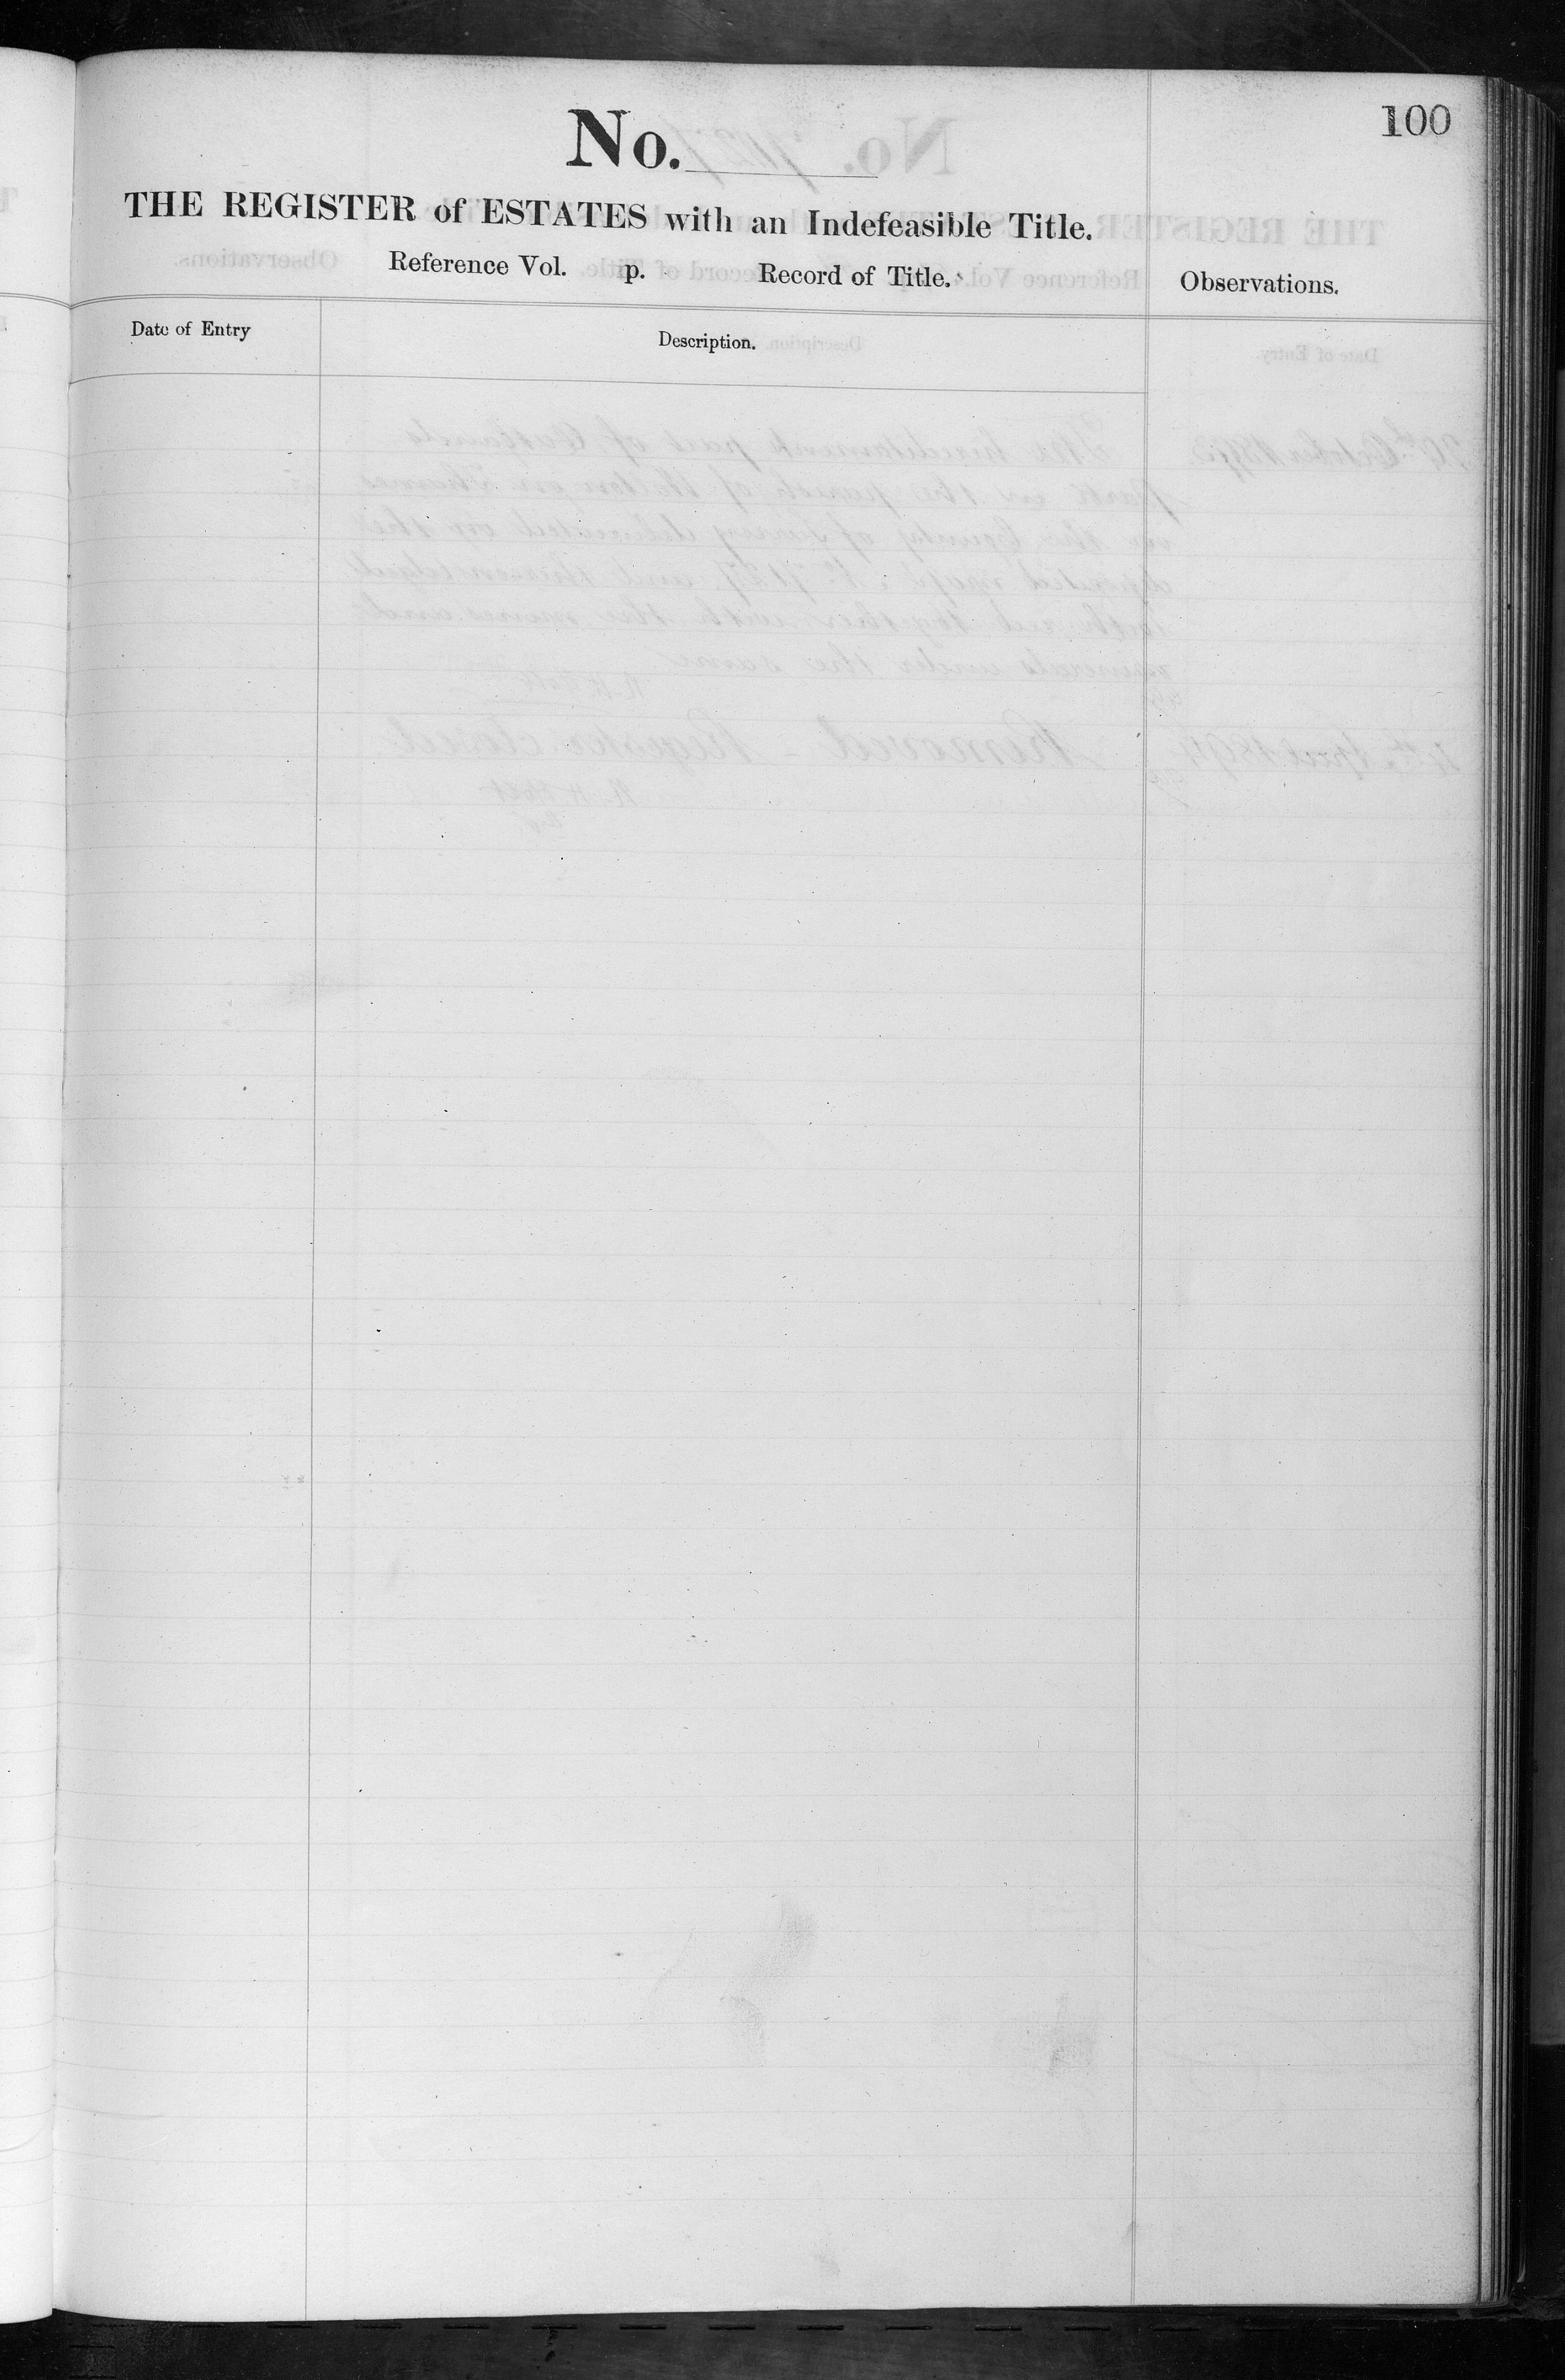 100
No.
THE REGISTER of ESTATES with an Indefeasible Title.
Reference Vol. p. Record of Title.
Observations.
Date of Entry
Description.